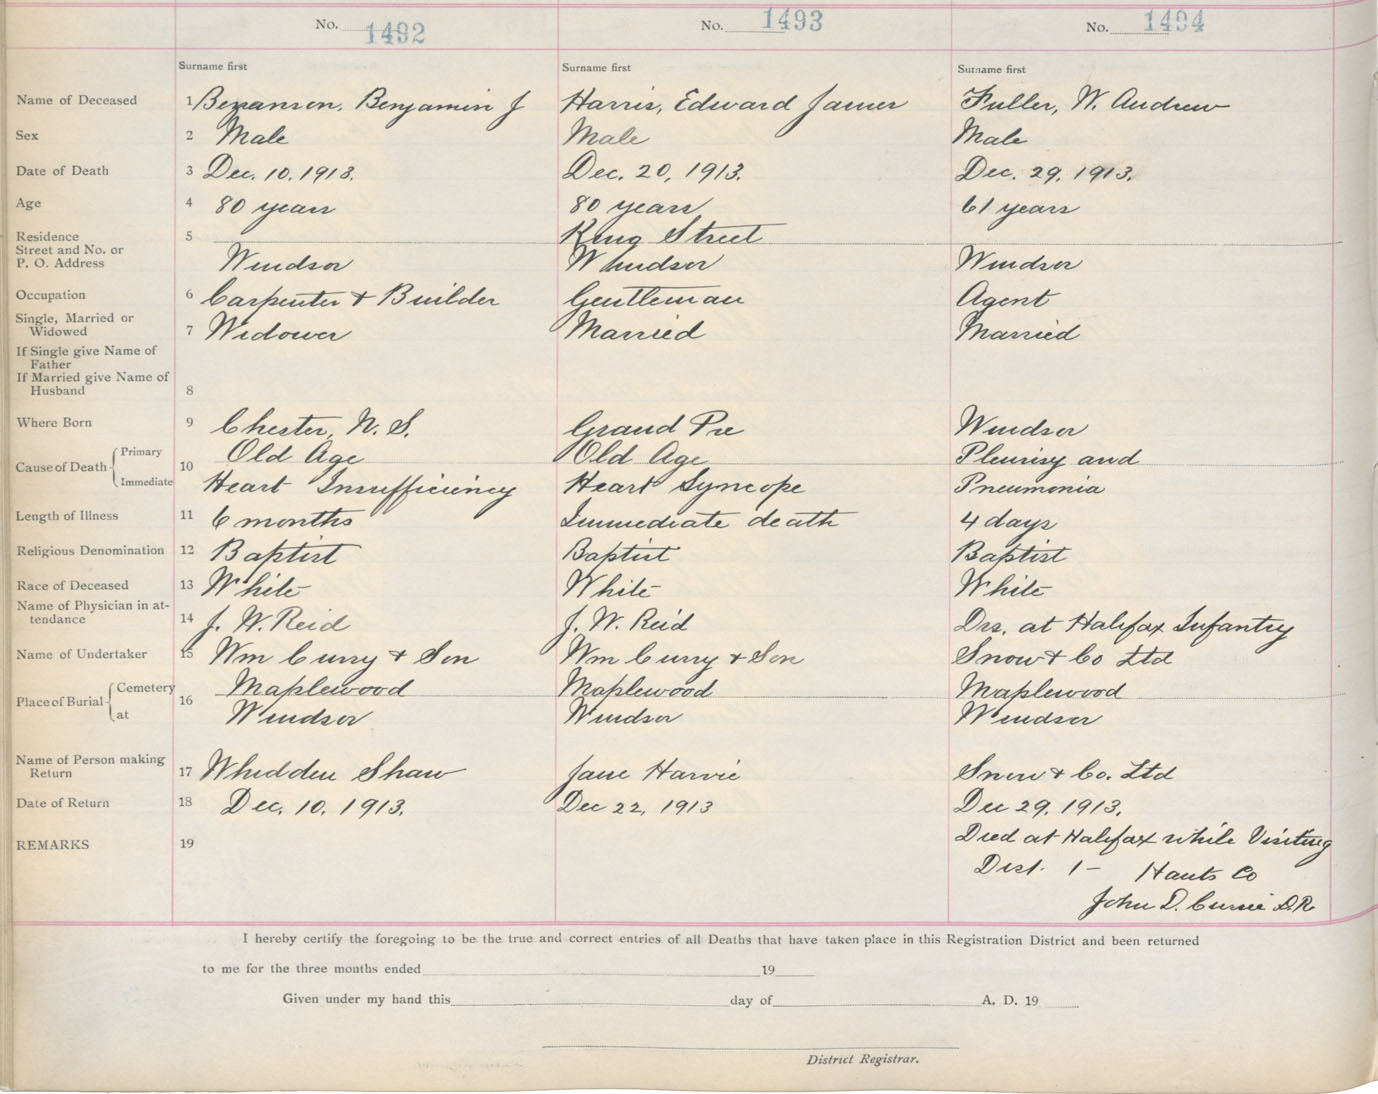 No. 1492 No. 1493 No. 1494
Surname first Surname first Surname first
Name of Deceased 1 Bezanson, Benjamin J Harris, Edward James Fuller, W. Andrew
Sex 2 Male Male Male
Date of Death 3 Dec. 10, 1913. Dec. 20, 1913. Dec. 29, 1913.
Age 4 80 years 80 years 61 years
Residence 5 King Street
Street and No. or
P. O. Address Windsor Windsor Windsor
Occupation 6 Carpenter & Builder Gentleman Agent
Single, Married or
Widowed 7 Widower Married Married
If Single give Name of
Father
If Married give Name of
Husband 8
Where Born 9 Chester, N. S. Grand Pre Windsor
Cause of Death Primary 10 Old Age Old Age Pleurisy and
Immediate Heart Insufficiency Heart Syncope Pneumonia
Length of Illness 11 6 months Immediate death 4 days
Religious Denomination 12 Baptist Baptist Baptist
Race of Deceased 13 White White White
Name of Physician in at-
tendance 14 J. W. Reid J. W. Reid Drs. at Halifax Infantry
Name of Undertaker 15 Wm Curry & Son Wm Curry & Son Snow & Co Ltd
Place of Burial Cemetery 16 Maplewood Maplewood Maplewood
at Windsor Windsor Windsor
Name of Person making
Return 17 Whidden Shaw Jane Harvie Snow & Co. Ltd
Date of Return 18 Dec. 10, 1913. Dec 22, 1913 Dec 29, 1913.
REMARKS 19 Died at Halifax while Visiting
Dist. 1 - Hants Co
John D. Currie D.R.
I hereby certify the foregoing to be the true and correct entries of all Deaths that have taken place in this Registration District and been returned
to me for the three months ended 19
Given under my hand this day of A. D. 19
District Registrar.